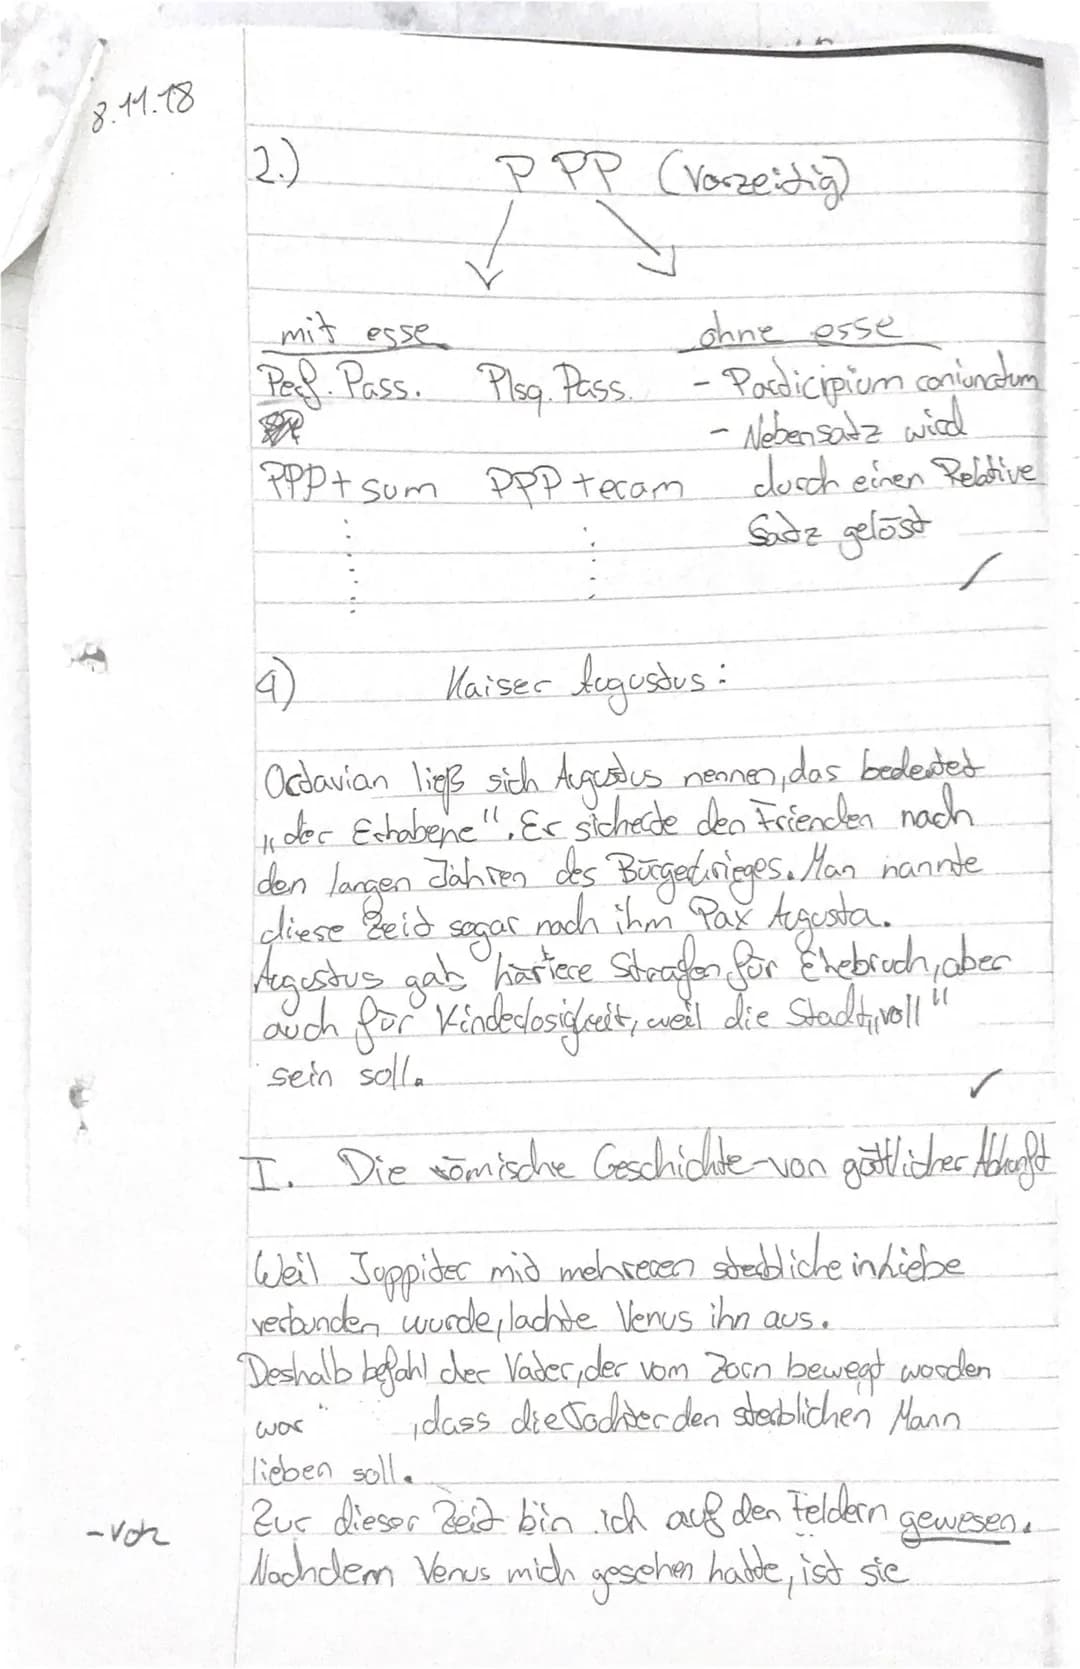 8.11.18
2.) PPP (Vorzeitig)
mit esse ohne esse
Perf. Pass. Plsq. Pass. - Participium coniunctum
- Nebensatz wird
PPP + sum PPP + eram durch einen Relative
Satz gelöst
4) Kaiser Augustus:
Octavian ließ sich Augustus nennen, das bedeutet
"der Erhabene". Er sicherte den Frienden nach
den langen Jahren des Bürgerkrieges. Man nannte
diese Zeit sogar nach ihm Pax Augusta.
Augustus gab härtere Straafen für Ehebruch, aber
auch für Kinderlosigkeit, weil die Stadt "voll"
sein soll.
I. Die römische Geschichte - von göttlicher Abkunft
Weil Juppiter mit mehreren sterbliche in Liebe
verbunden wurde, lachte Venus ihn aus.
Deshalb befahl der Vater, der vom Zorn bewegt worden
war , dass die Tochter den sterblichen Mann
lieben soll.
Zur dieser Zeit bin ich auf den Feldern gewesen.
Nachdem Venus mich gesehen hatte, ist sie